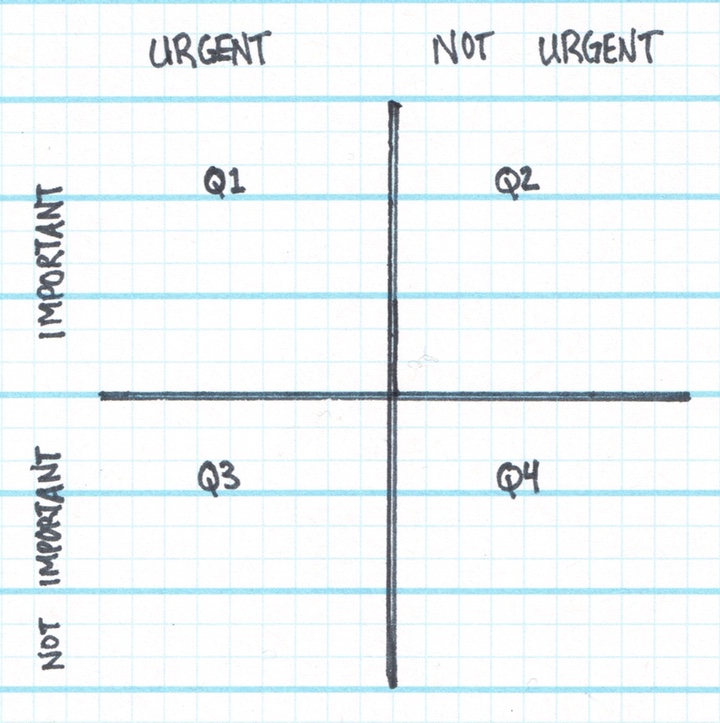 URGENT NOT URGENT
IMPORTANT
Q1 Q2
NOT IMPORTANT
Q3 Q4